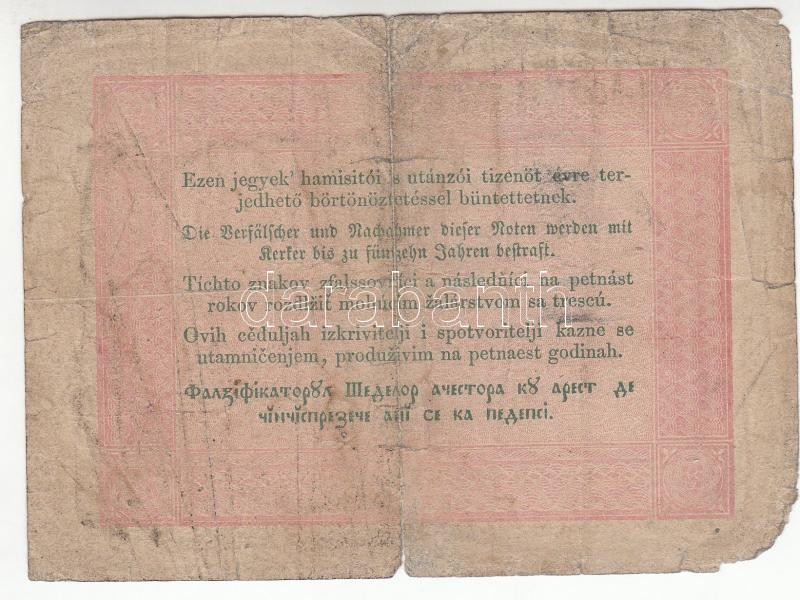 Ezen jegyek' hamisitói 's utánzói tizenöt évre ter-
jedhető börtönöztetéssel büntettetnek.
Die Verfälscher und Nachahmer dieser Noten werden mit
Kerker bis zu fünfzehn Jahren bestraft.
Tíchto znakov zfalssovníci a následňíci na petnást
rokov rozdlžiť mohucím žalárstvom sa trescú.
Ovih céduljah izkrivitelji i spotvoritelji kazne se
utamničenjem, produživim na petnaest godinah.
Фалꙁіфікаторꙋл Шеделор ачестора кꙋ арест де
чінчіспреꙁече ані се ка педепсі.
darabanth